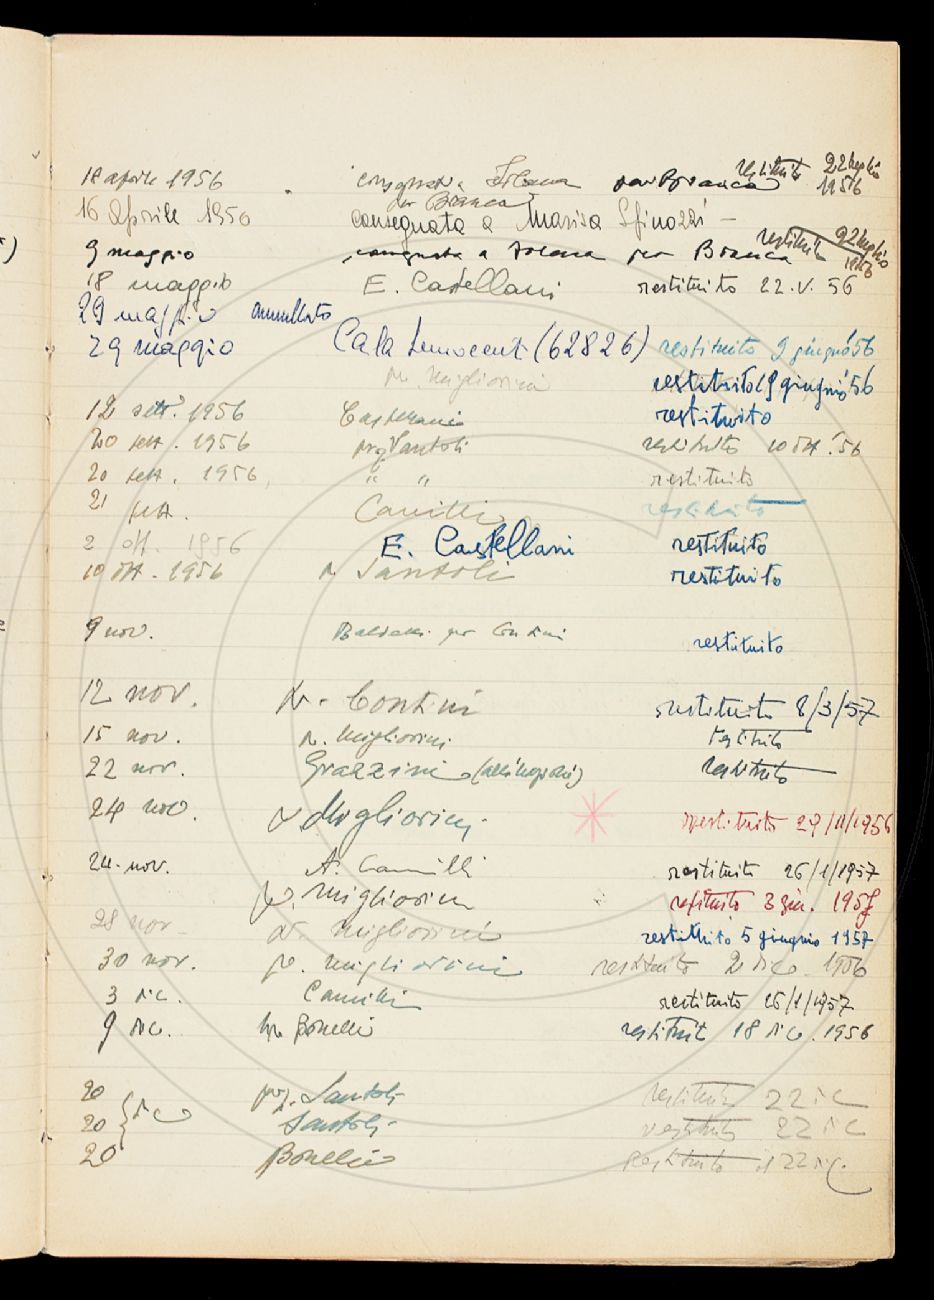 18 aprile 1956 consegnata a per Branca restituito 22 luglio 1956
per Branca
16 Aprile 1950 consegnata a Marisa Sfinozzi –
9 maggio consegnata a per Branca restituito 22 luglio 1956
18 maggio E. Castellani restituito 22.V.56
29 maggio annullato
29 maggio Cala Innocenti (62826) restituito 9 giugno '56
pr. Migliorini restituito 19 giugno '56
12 sett. 1956 Castellani restituito
20 sett. 1956 prof Santoli restituito 10 ott. '56
20 sett. 1956, " " restituito
21 sett. Camilli restituito
2 ott. 1956 E. Castellani restituito
10 ott. 1956 Santoli restituito
9 nov. per Contini restituito
12 nov. Contini restituito 8/3/57
15 nov. Migliorini restituito
22 nov. Grazzini restituito
24 nov. Migliorini restituito 29/11/1956
24. nov. A. Camilli restituito 26/1/1957
Migliorini restituito 3 giu. 1957
28 nov Migliorini restituito 5 giugno 1957
30 nov. Migliorini restituito 2 dic. 1956
3 dic. Camilli restituito 26/1/1957
9 dic. Bonelli restituit 18 dic. 1956
20 dic prof. Santoli restituito 22 dic
20 Santoli restituito 22 dic
20 Bonelli restituito il 22 dic.